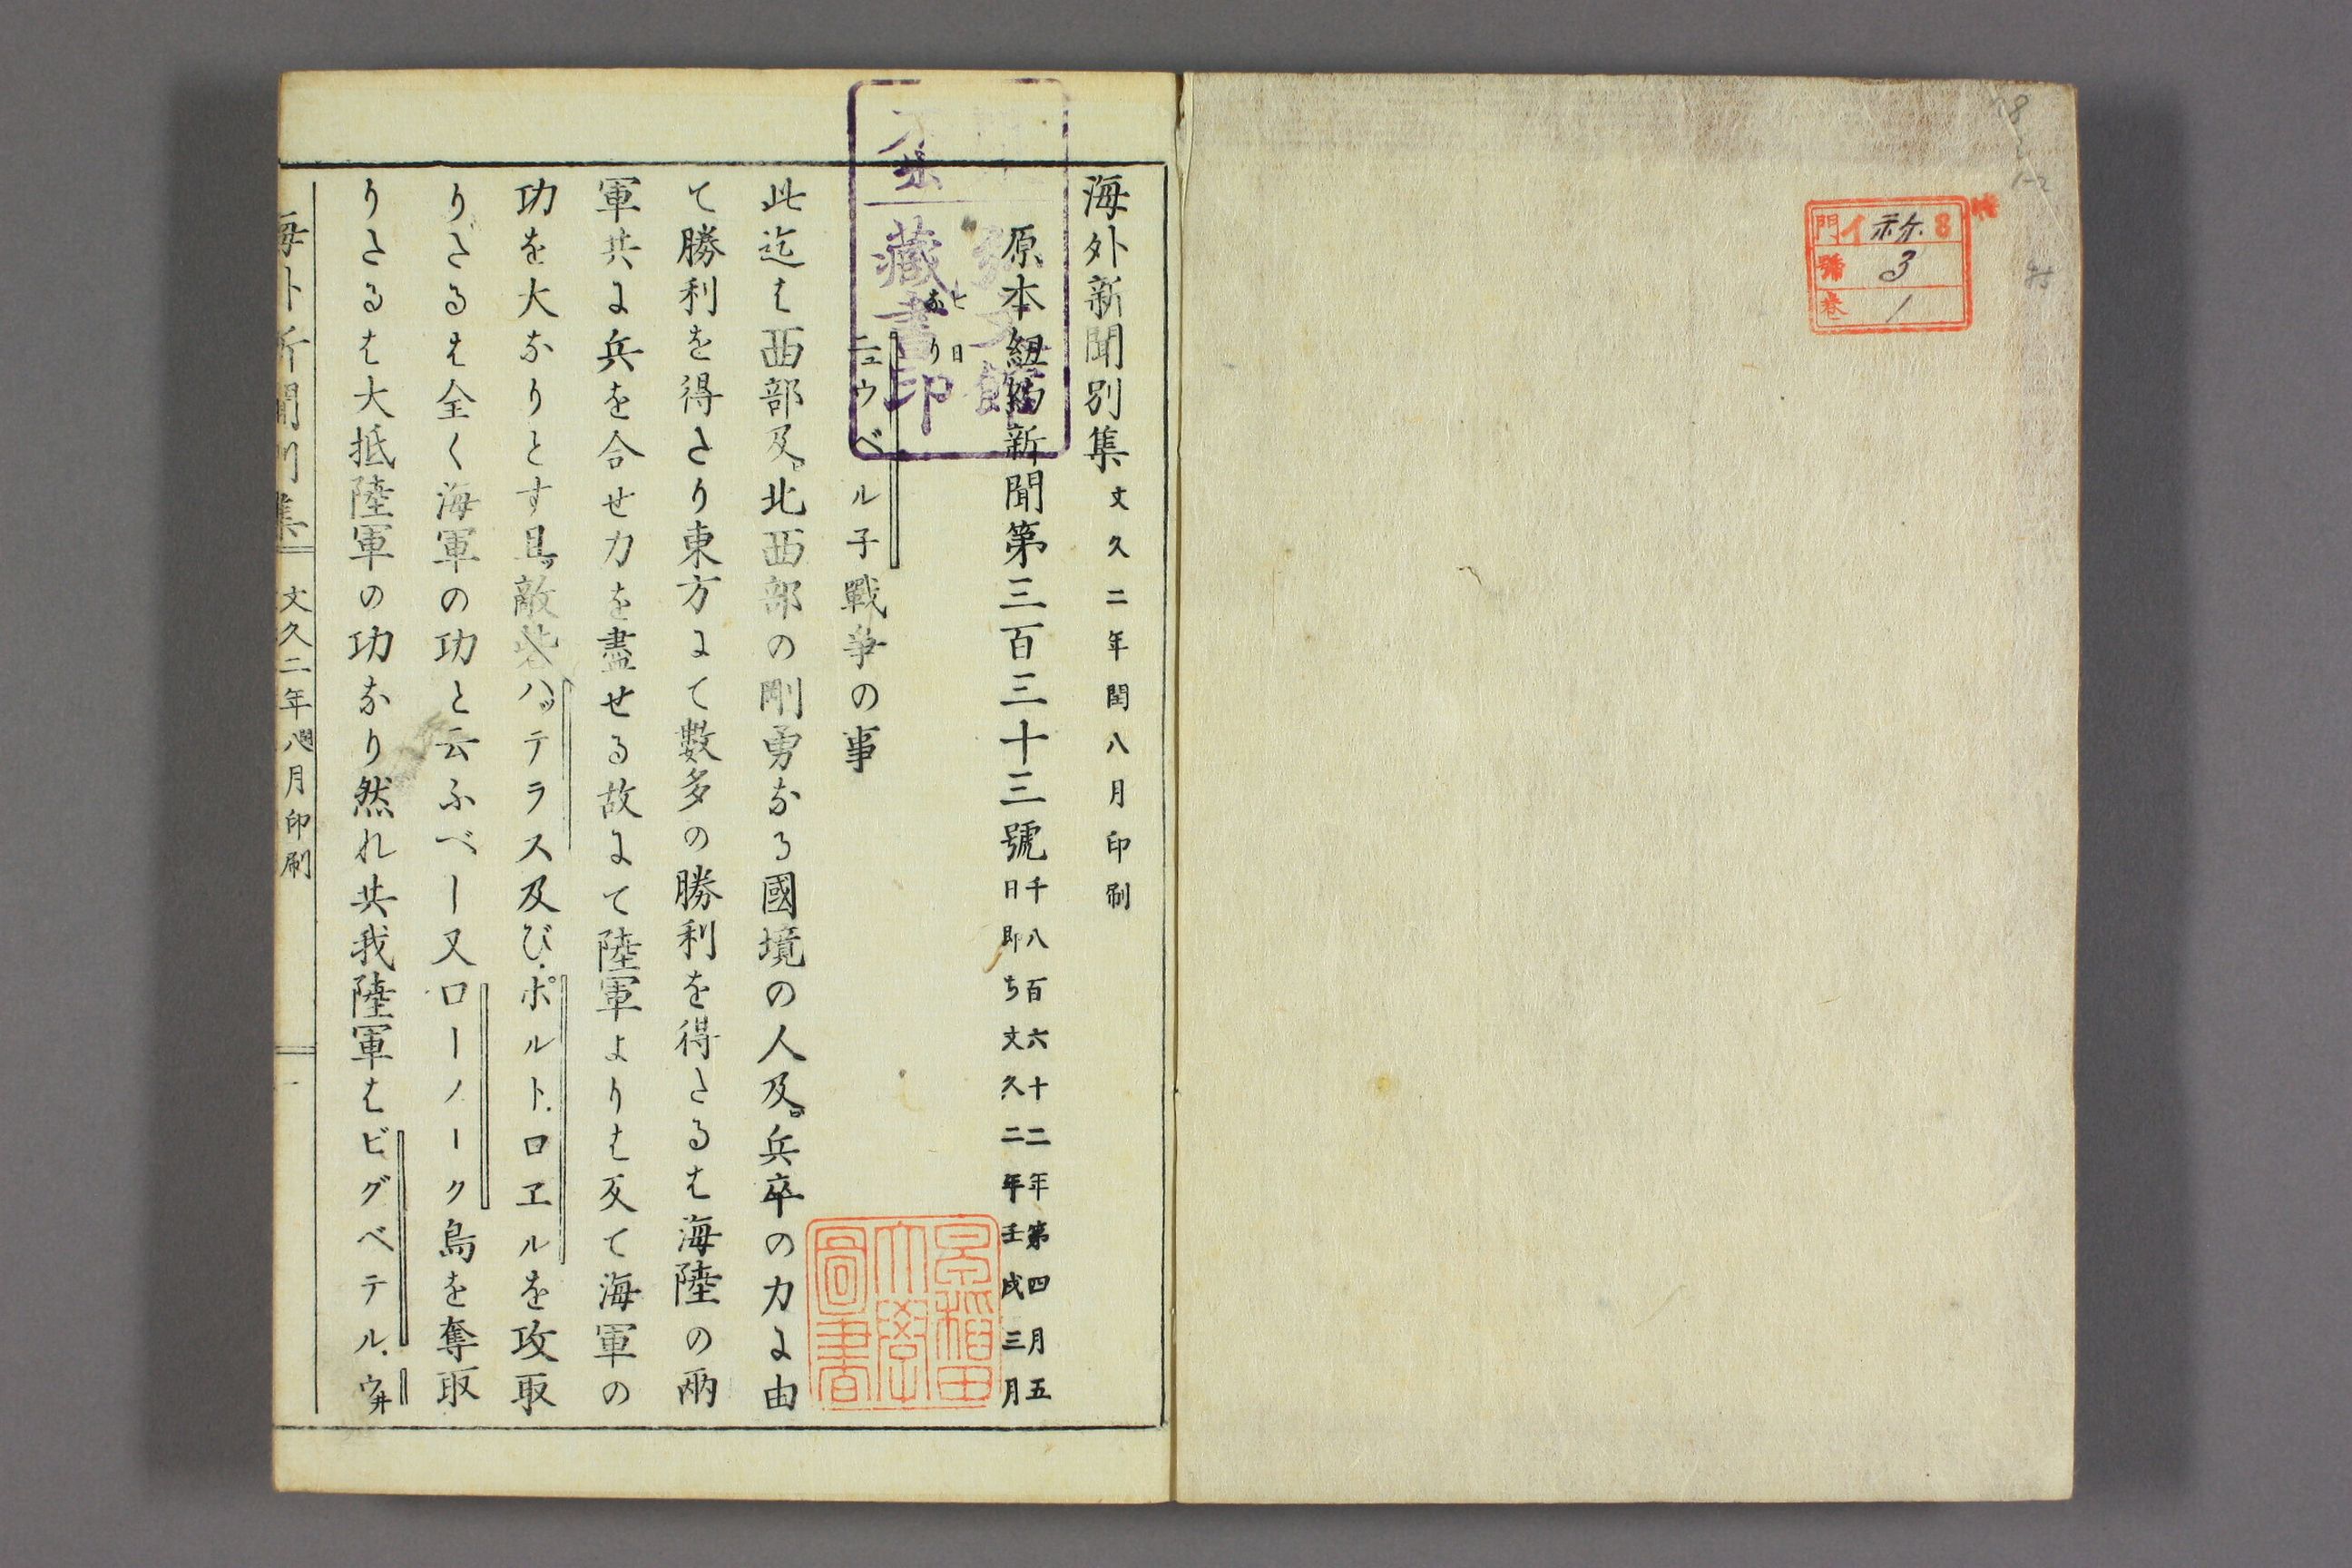 門 イ 8
號 3
巻 1
海外新聞別集 文久二年閏八月印刷
原本紐約新聞第三百三十三號 千八百六十二年第四月五
日即ち文久二年壬戌三月
七日
なり
ニュウベル子戰爭の事
此迄は西部及北西部の剛勇なる國境の人及兵卒の力に由
て勝利を得たり東方にて數多の勝利を得たるは海陸の兩
軍共に兵を合せ力を盡せる故にて陸軍よりは反て海軍の
功を大なりとす且ッ敵砦ハッテラス及びポルトロヱルを攻取
りたるは全く海軍の功と云ふべし又ローノーク島を奪取
りたるは大抵陸軍の功なり然れ共我陸軍はビグベテル、ウ井
海外新聞別集 文久二年閏八月印刷 一
藏書印
早稲田大學圖書